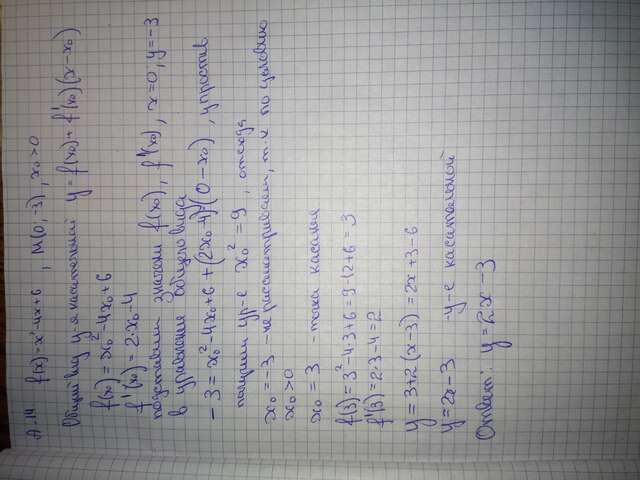 А.14 f(x)=x²-4x+6, M(0;-3), x₀>0
Общий вид у-я касательной y=f(x₀)+f'(x₀)(x-x₀)
f(x₀)=x₀²-4x₀+6
f'(x₀)=2·x₀-4
подставим значени f(x₀), f'(x₀), x=0; y=-3
в уравнение общего вида
-3=x₀²-4x₀+6+(2x₀-4)·(0-x₀), упростив
получим ур-е x₀²=9, откуда
x₀=-3 -не рассматриваем, т-к по условию
x₀>0
x₀=3 -точка касания
f(3)=3²-4·3+6=9-12+6=3
f'(3)=2·3-4=2
y=3+2(x-3)=2x+3-6
y=2x-3 -у-е касательной
Ответ: y=2x-3